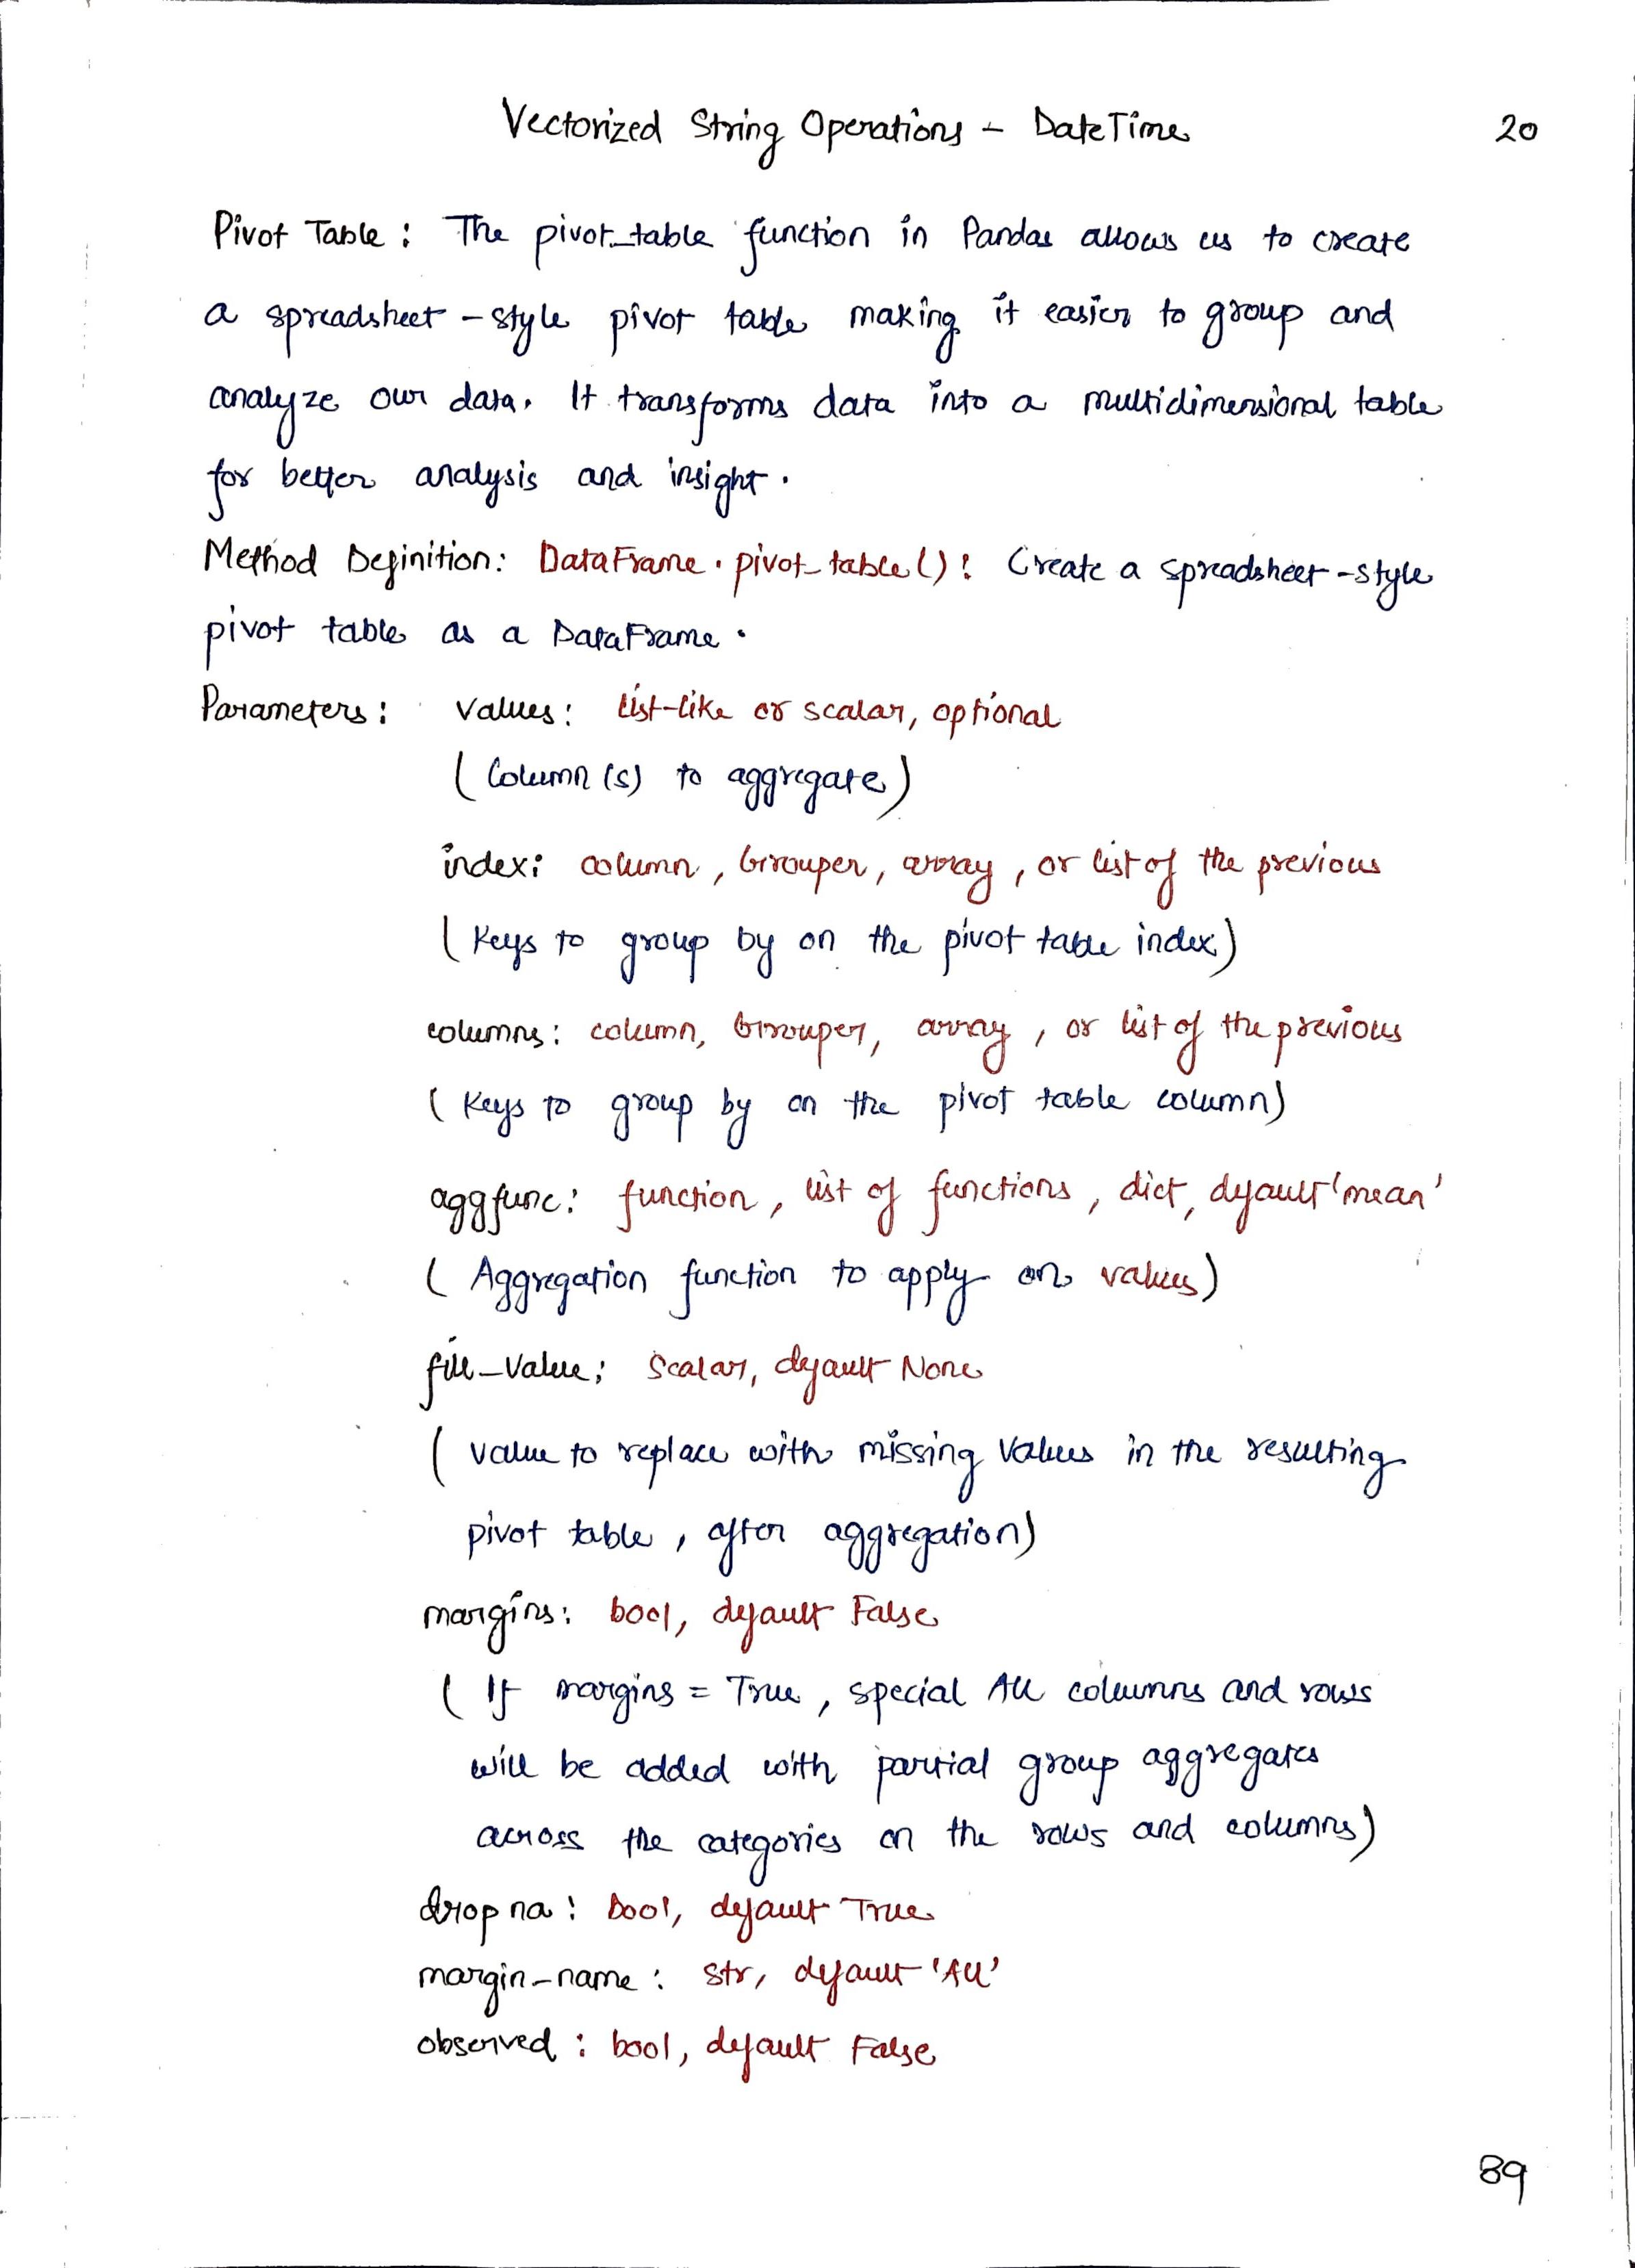 Vectorized String Operations - DateTime
20
Pivot Table : The pivot_table function in Pandas allows us to create
a spreadsheet - style pivot table making it easier to group and
analyze our data. It transforms data into a multidimensional table
for better analysis and insight.
Method Definition: DataFrame.pivot_table() : Create a spreadsheet-style
pivot table as a DataFrame.
Parameters : values : list-like or scalar, optional
(Column(s) to aggregate)
index: column, Grouper, array, or list of the previous
(Keys to group by on the pivot table index)
columns: column, Grouper, array, or list of the previous
(Keys to group by on the pivot table column)
aggfunc: function, list of functions, dict, default 'mean'
(Aggregation function to apply on values)
fill_value: Scalar, default None
(value to replace with missing values in the resulting
pivot table, after aggregation)
margins: bool, default False
(If margins = True, special All columns and rows
will be added with partial group aggregates
across the categories on the rows and columns)
dropna : bool, default True
margin-name : str, default 'All'
observed : bool, default False
89